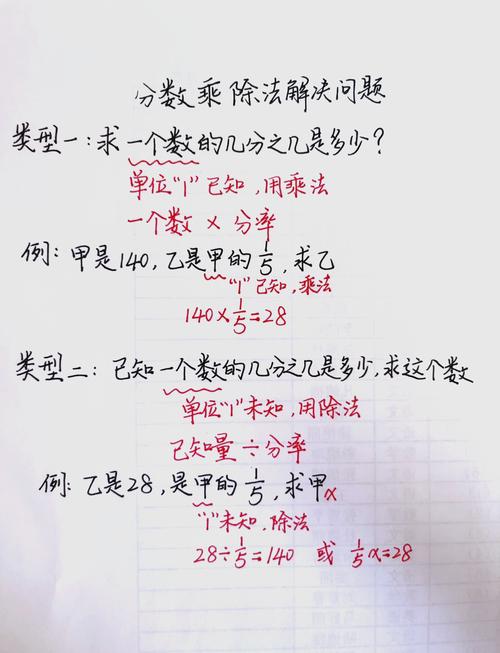 分数乘除法解决问题
类型一:求一个数的几分之几是多少?
单位"1"已知,用乘法
一个数×分率
例:甲是140,乙是甲的1/5,求乙
"1"已知,乘法
140×1/5=28
类型二:已知一个数的几分之几是多少,求这个数
单位"1"未知,用除法
已知量÷分率
例:乙是28,是甲的1/5,求甲x
"1"未知,除法
28÷1/5=140 或 1/5x=28